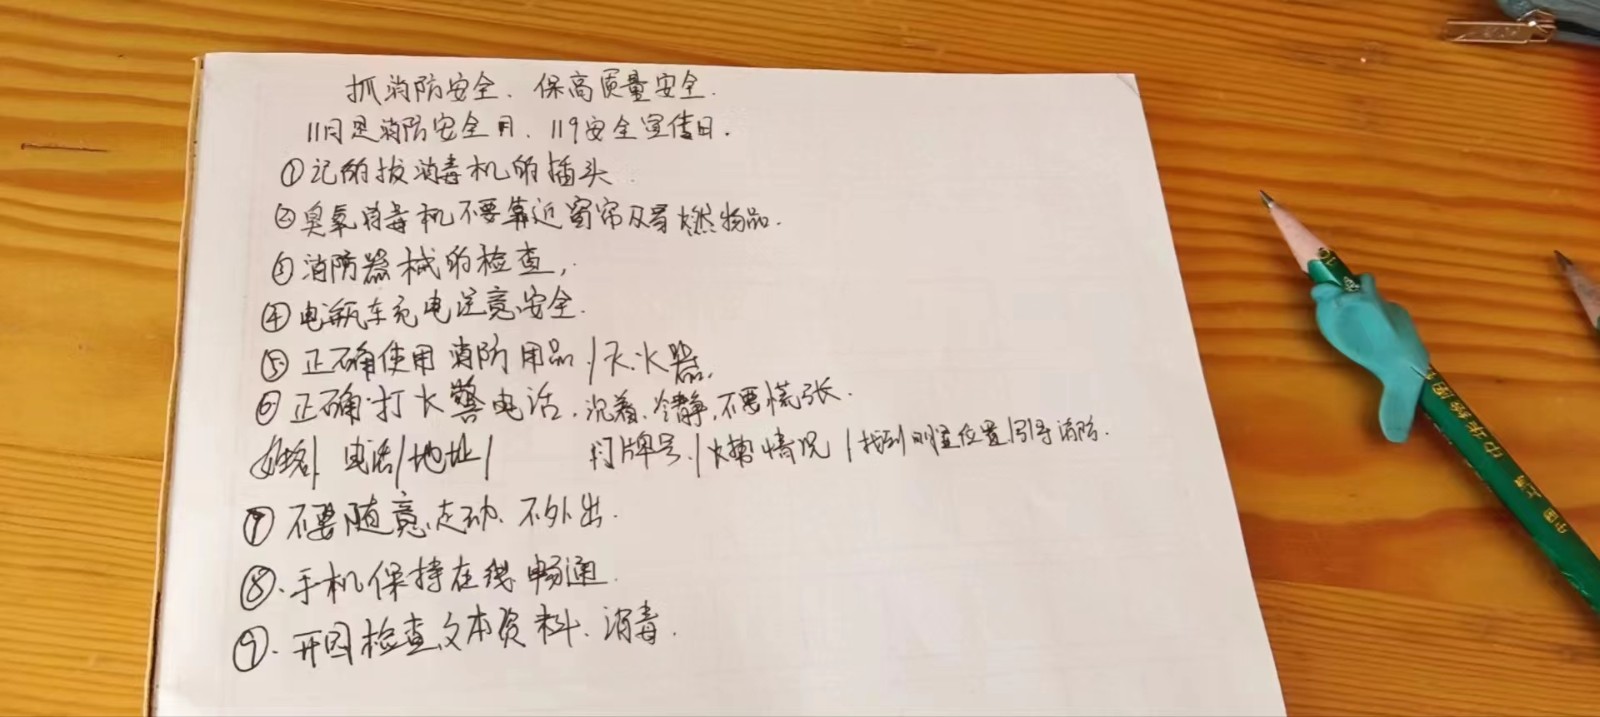 抓消防安全、保高质量安全.
11月是消防安全月、119安全宣传日.
①记的拔消毒机的插头.
②臭氧消毒机不要靠近窗帘及易燃物品.
③消防器械的检查,.
④电瓶车充电注意安全.
⑤正确使用消防用品/灭火器.
⑥正确打火警电话.沉着、冷静,不要慌张.
姓名/电话/地址/ 门牌号/火势情况/找到明显位置/引导消防.
⑦不要随意走动、不外出.
⑧.手机保持在线畅通.
⑨.开园检查文本资料、消毒.
中国
上海